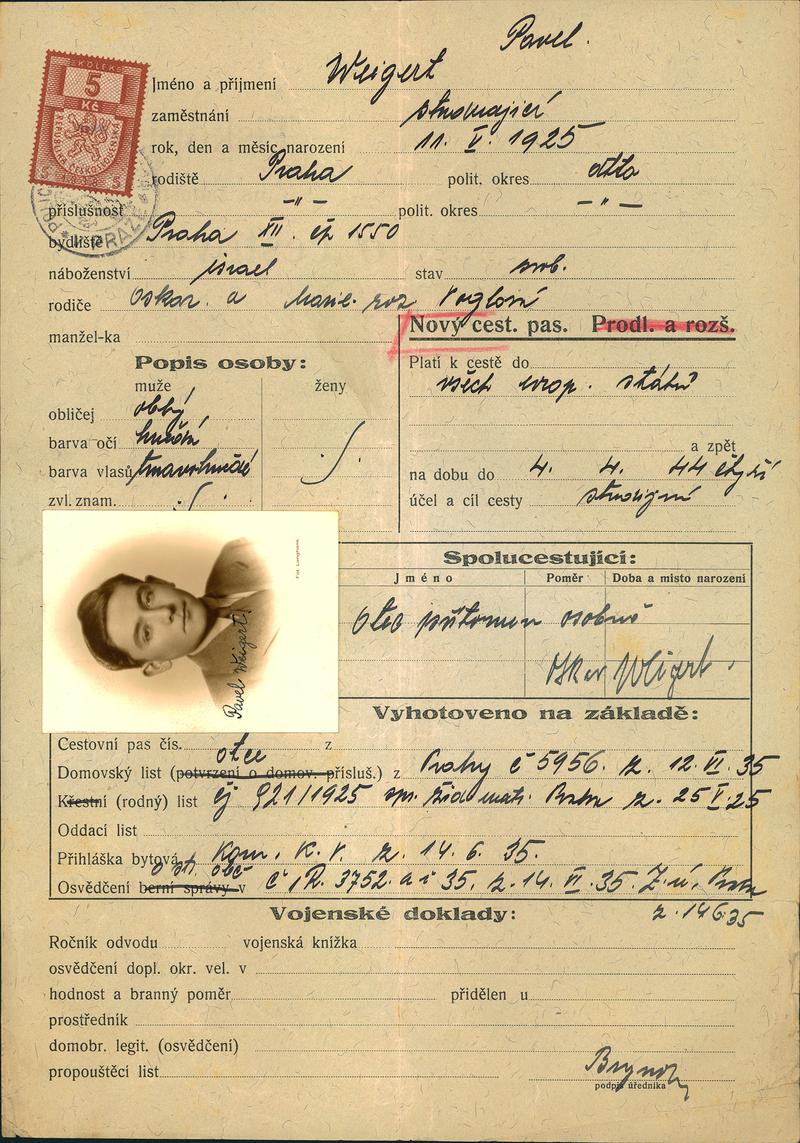 Pavel.
Jméno a příjmení Weigert
zaměstnání studující
rok, den a měsíc narození 11. V. 1925
rodiště Praha polit. okres dtto
příslušnost -"- polit. okres -"-
bydliště Praha XII. čp 1550
náboženství israel stav svob.
rodiče Oskar a Marie roz Voglová
manžel-ka
Nový cest. pas. Prodl. a rozš.
Popis osoby:
muže ženy
obličej oblý
barva očí hnědá
barva vlasů tmavohnědé
zvl. znam. ./.
./.
Platí k cestě do
všech evrop. států
a zpět
na dobu do 4. 4. 44 čtyři
účel a cíl cesty studijní
SKOLEK
5
Kč
REPUBLIKA ČESKOSLOVENSKÁ
V PRAZE
Fot. Langhans
Pavel Weigert
Spolucestující:
Jméno Poměr Doba a místo narození
Otec přítomen osobně
Oskar Weigert.
Vyhotoveno na základě:
Cestovní pas čís. z
otce
Domovský list (potvrzení o domov. přísluš.) z Prahy č 5956. z. 12. VI. 35
Křestní (rodný) list čj 921/1925 žid. matr. Praha z. 25 V. 25
Oddací list
Přihláška bytová kom. K. V. z. 14. 6. 35.
o st. obč
Osvědčení berní správy v č. 3752. 35. z. 14. VI. 35. Z. ú. Praha
z. 14 6 35
Vojenské doklady:
Ročník odvodu vojenská knížka
osvědčení dopl. okr. vel. v
hodnost a branný poměr přidělen u
prostředník
domobr. legit. (osvědčení)
propouštěcí list
podpis úředníka